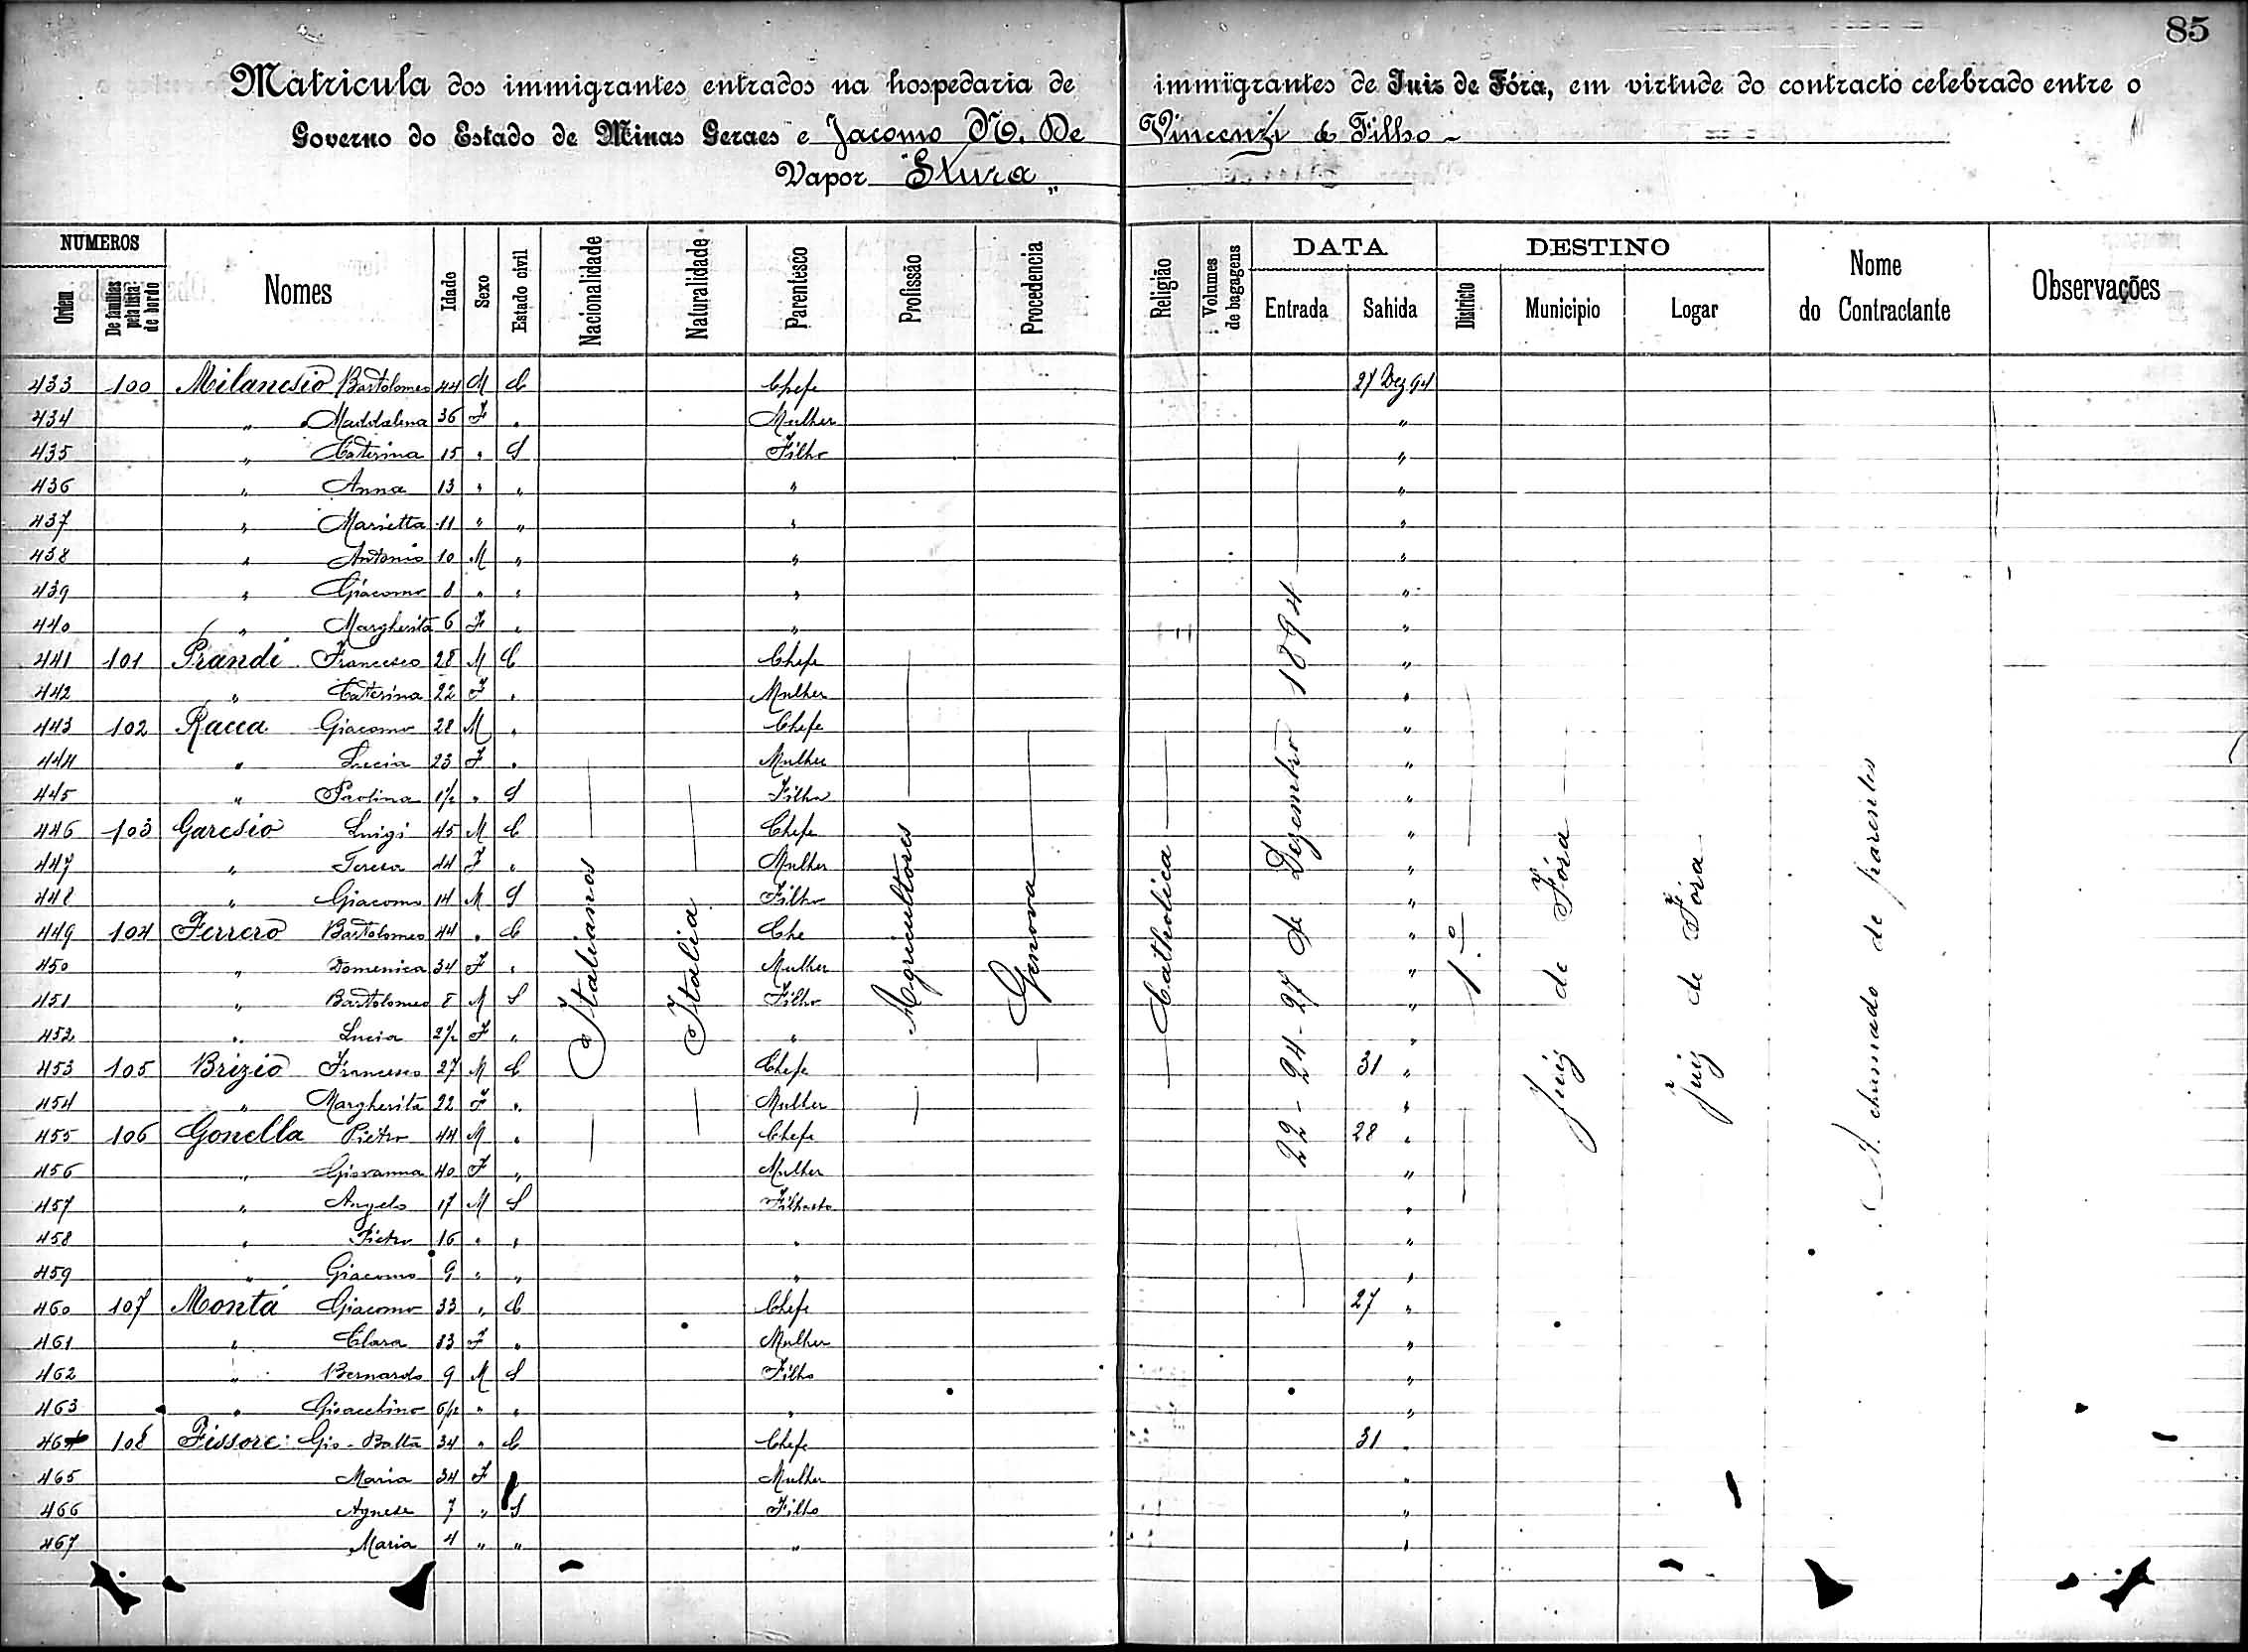 85
Matricula dos immigrantes entrados na hospedaria de immigrantes de Juiz de Fóra, em virtude do contracto celebrado entre o
Governo do Estado de Minas Geraes e Jacomo N. De Vincenzi & Filho
Vapor "Stura"
NUMEROS
Ordem
De familias pela lista de bordo
Nomes
Idade
Sexo
Estado civil
Nacionalidade
Naturalidade
Parentesco
Profissão
Procedencia
Religião
Volumes de bagagens
DATA
Entrada
Sahida
DESTINO
Districto
Municipio
Logar
Nome do Contractante
Observações
433 100 Milanesio Bartolomeo 44 M C Chefe 27 Dez 94
434 " Maddalena 36 F " Mulher "
435 " Caterina 15 " S Filho "
436 " Anna 13 " " " "
437 " Marietta 11 " " " "
438 " Antonio 10 M " " "
439 " Giacomo 8 " " " "
440 " Margherita 6 F " " "
441 101 Prandi Francesco 28 M C Chefe "
442 " Caterina 22 F " Mulher "
443 102 Racca Giacomo 28 M " Chefe "
444 " Lucia 23 F " Mulher "
445 " Paolina 1½ " S Filha "
446 103 Garesio Luigi 45 M C Chefe "
447 " Teresa 44 F " Mulher "
448 " Giacomo 14 M S Filho "
449 104 Ferrero Bartolomeo 44 " C Che "
450 " Domenica 34 F " Mulher "
451 " Bartolomeo 8 M S Filho "
452 " Lucia 2½ F " " "
453 105 Brizio Francesco 27 M C Chefe 31 "
454 " Margherita 22 F " Mulher "
455 106 Gonella Pietro 44 M " Chefe 28 "
456 " Giovanna 40 F " Mulher "
457 " Angelo 17 M S Filhasto "
458 " Pietro 16 " " " "
459 " Giacomo 9 " " " "
460 107 Montá Giacomo 33 " C Chefe 27 "
461 " Clara 33 F " Mulher "
462 " Bernardo 9 M S Filho "
463 " Gioacchino 6/12 " " " "
464 108 Fissore: Gio-Batta 34 " C Chefe 31 "
465 Maria 34 F Mulher "
466 Agnese 7 " S Filho "
467 Maria 4 " " " "
Italianos
Italia
Agricultores
Genova
Catholica
22-24-27 de Dezembro 1894
1.º
Juiz de Fóra
Juiz de Fóra
A chamado de parentes